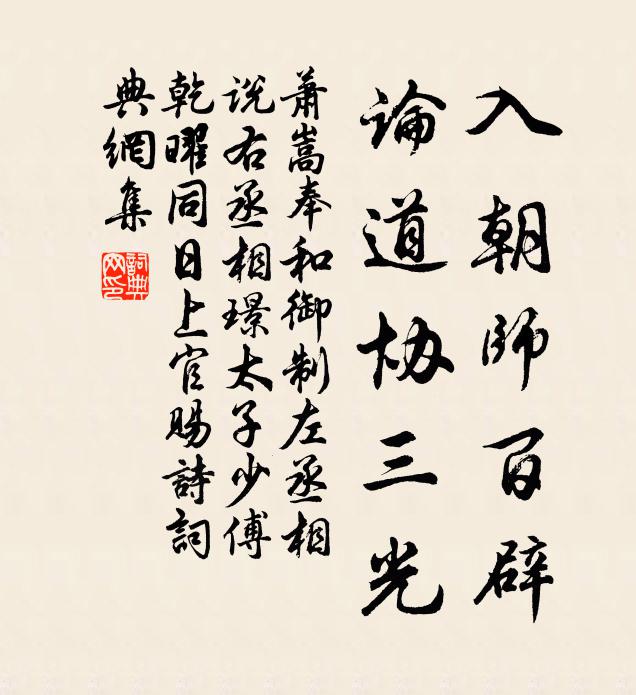 入朝師百辟
論道协三光
萧嵩奉和御制左丞相
说右丞相璟太子少傅
乾曜同日上官赐詩詞
典網集
詞典
网印